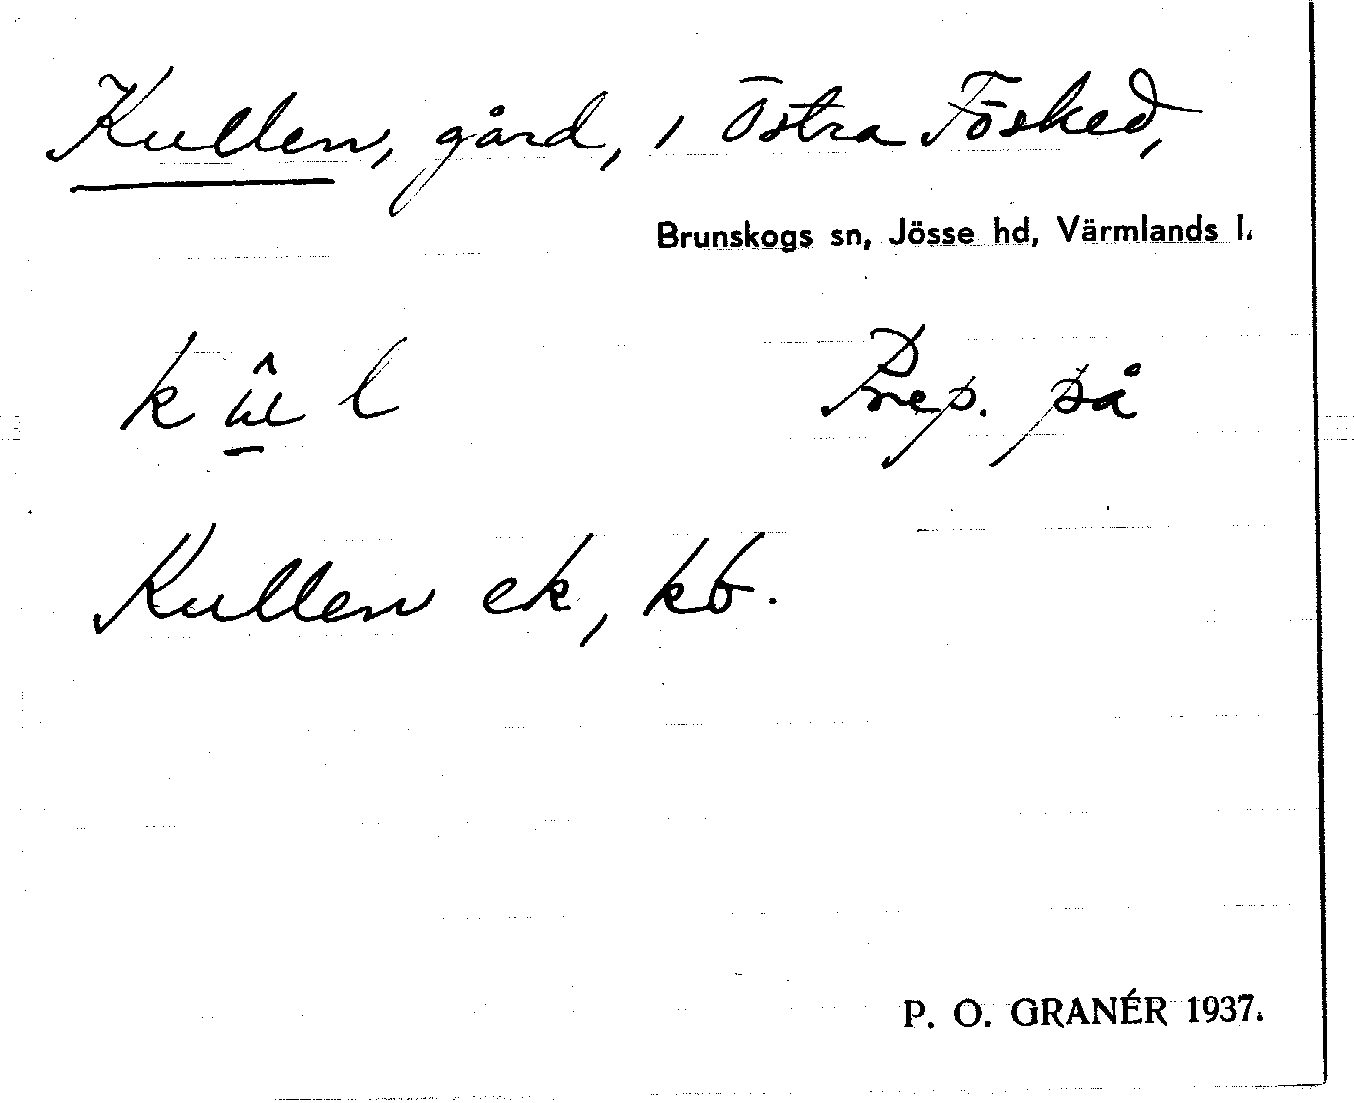 Kullen, gård, i Östra Fösked,
Brunskogs sn, Jösse hd, Värmlands l.
Prep. på
Kullen ek, kb.
P. O. GRANÉR 1937.